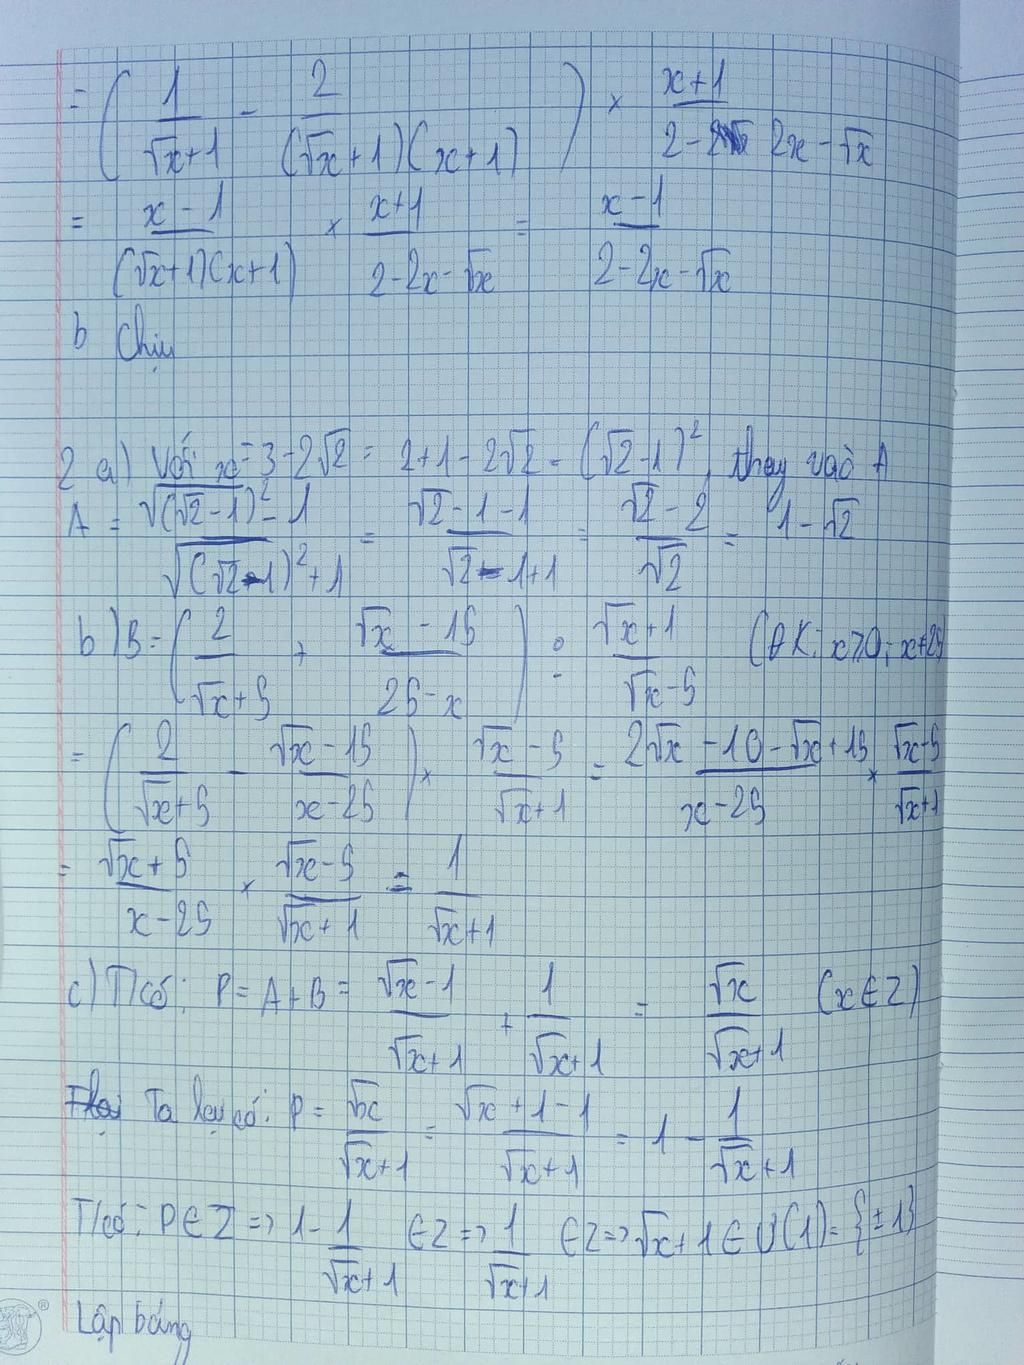 = ( 1/(√x+1) - 2/((√x+1)(x+1)) ) × (x+1)/(2 - 2x - √x)
= (x-1)/((√x+1)(x+1)) × (x+1)/(2-2x-√x) = (x-1)/(2-2x-√x)
b Chịu
2 a) Với x = 3-2√2 = 2+1-2√2 = (√2-1)², thay vào A
A = (√(√2-1)² - 1)/(√(√2-1)² + 1) = (√2-1-1)/(√2-1+1) = (√2-2)/√2 = 1-√2
b) B = ( 2/(√x+5) + (√x-15)/(25-x) ) : (√x+1)/(√x-5) (ĐK: x≥0; x≠25
= ( 2/(√x+5) - (√x-15)/(x-25) ) × (√x-5)/(√x+1) = (2√x-10-√x+15)/(x-25) × (√x-5)/(√x+1)
= (√x+5)/(x-25) × (√x-5)/(√x+1) = 1/(√x+1)
c) T/có: P = A+B = (√x-1)/(√x+1) + 1/(√x+1) = √x/(√x+1) (x∈Z)
Ta lại có: P = √x/(√x+1) = (√x+1-1)/(√x+1) = 1 - 1/(√x+1)
T/có: P∈Z => 1 - 1/(√x+1) ∈Z => 1/(√x+1) ∈Z => √x+1 ∈ Ư(1) = {±1}
Lập bảng